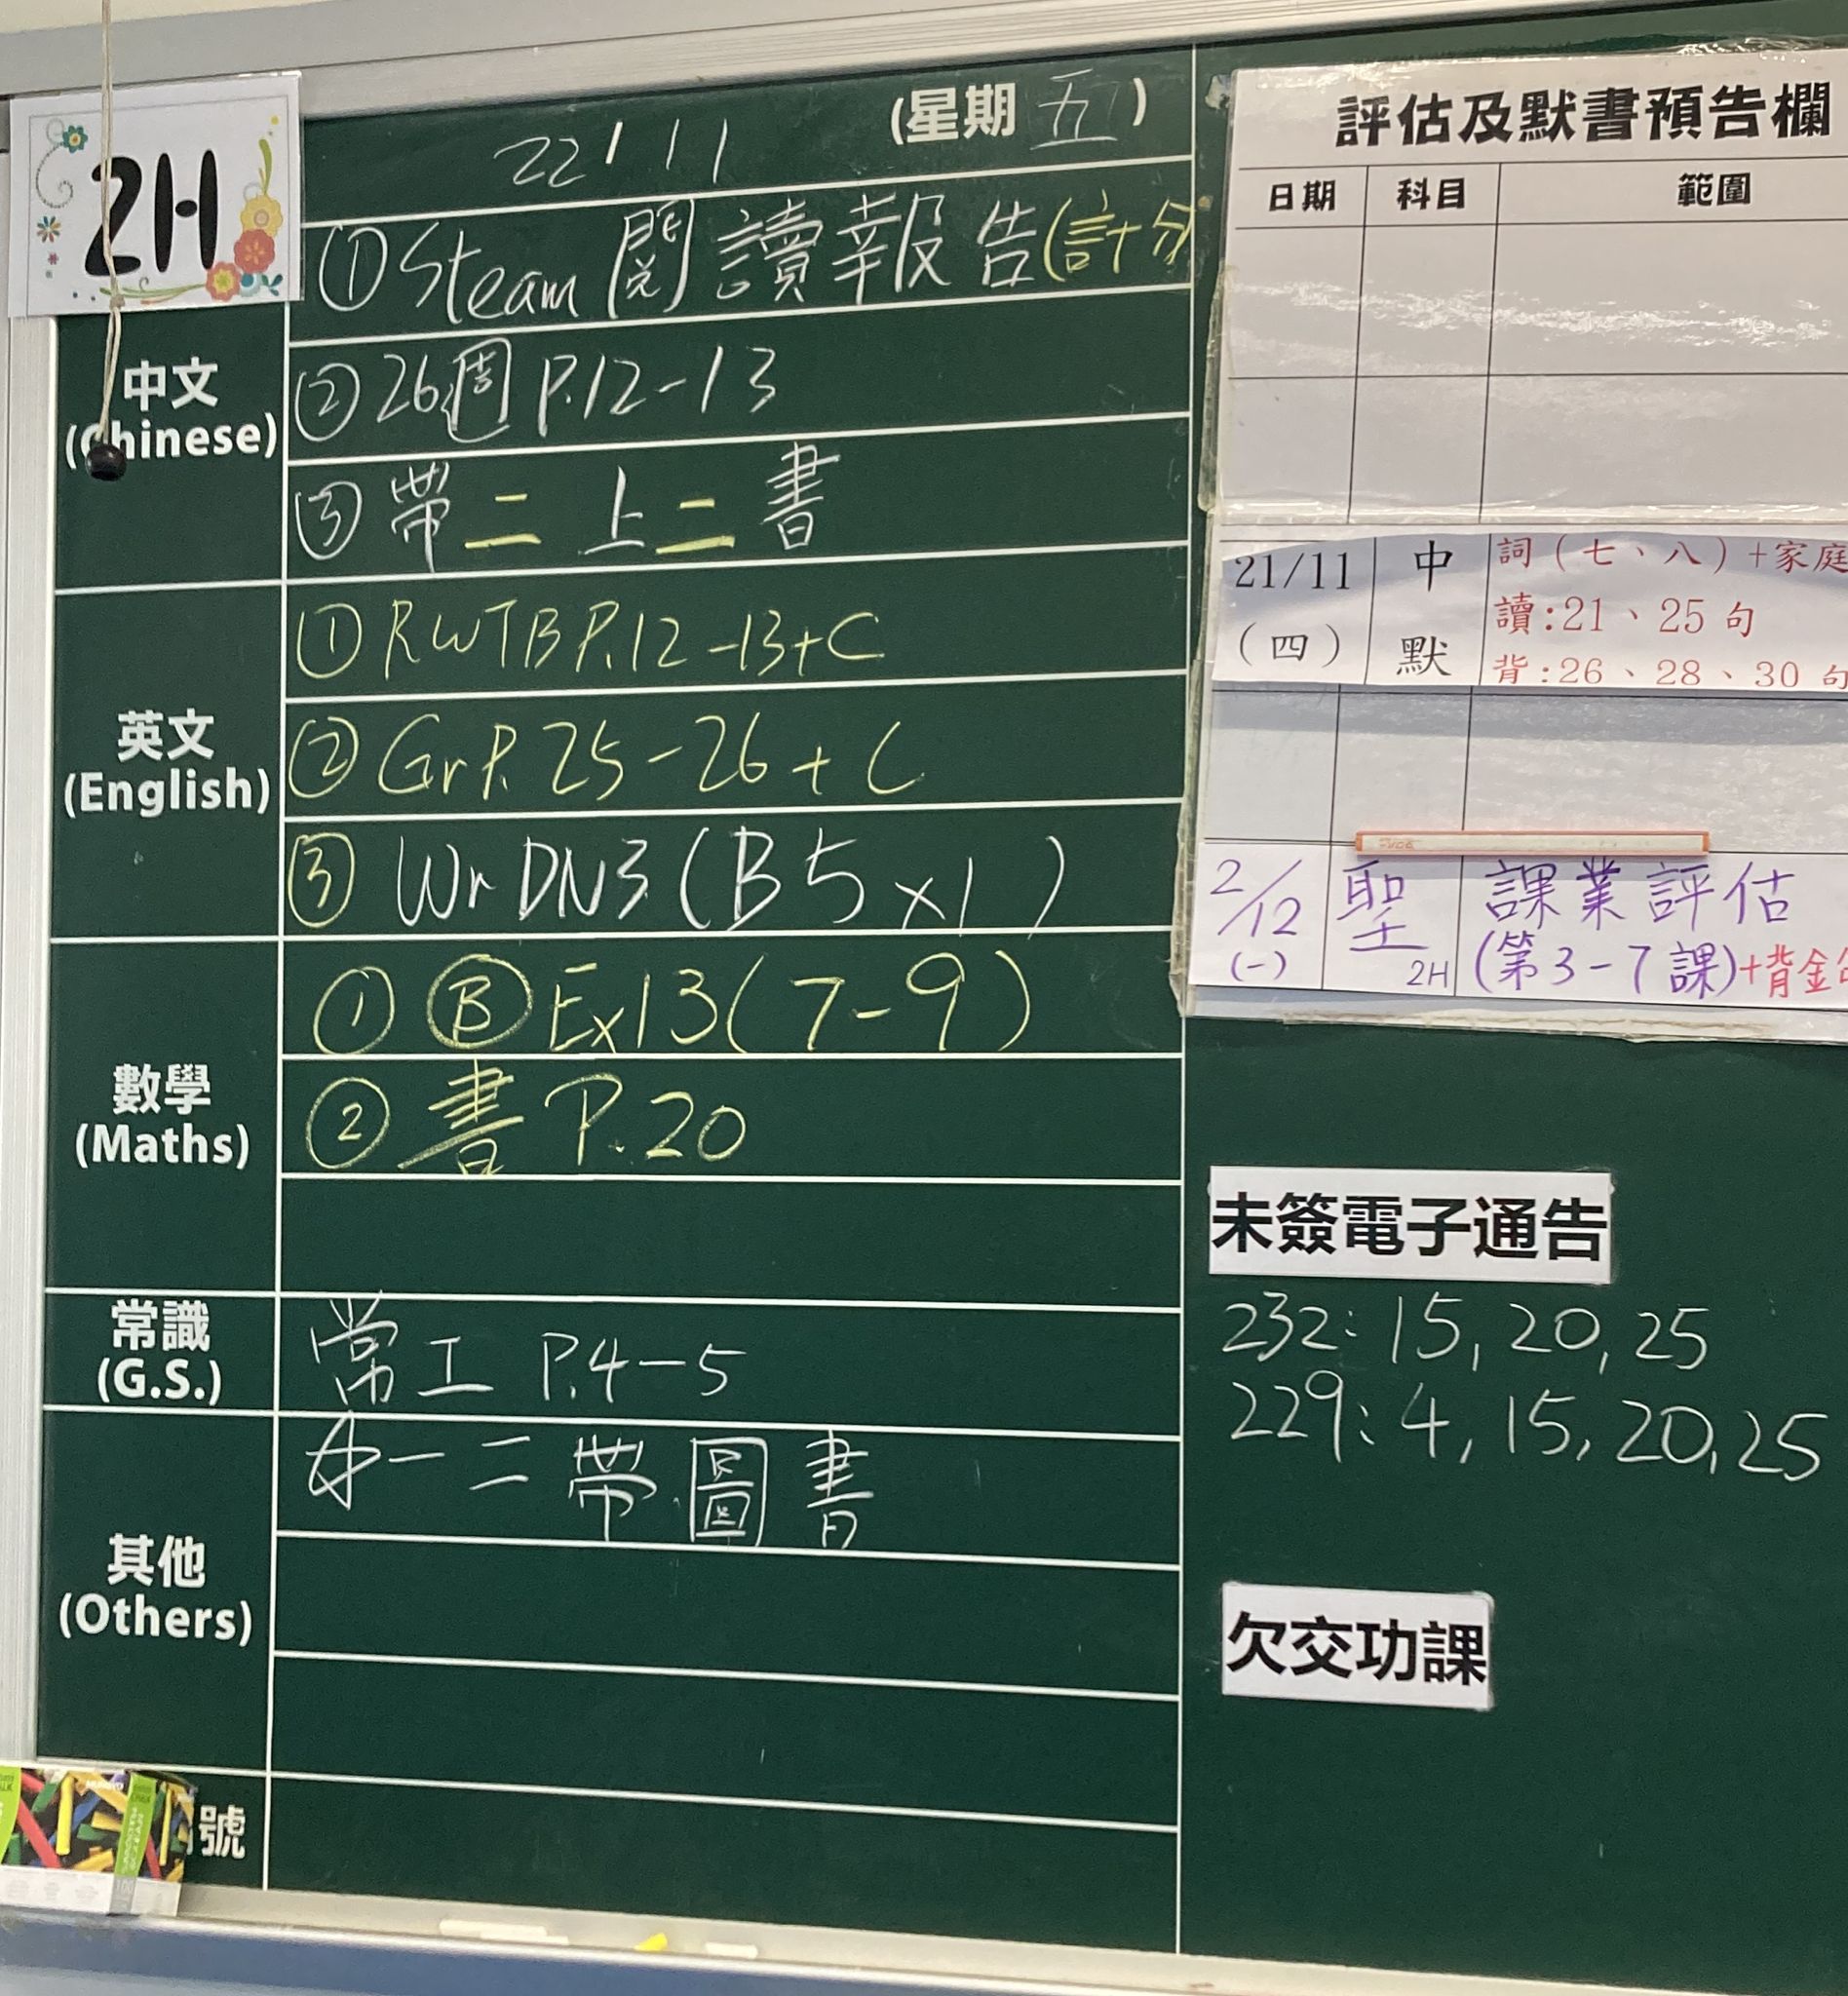 2H
22/11 (星期五)
①Steam閱讀報告(計分
中文
(Chinese)
②26週 P.12-13
③帶二上二書
英文
(English)
①RWTB P.12-13+C
②Gr P.25-26+C
③Wr DN3(B5x1)
數學
(Maths)
①Ⓑ Ex13(7-9)
②書 P.20
常識
(G.S.)
常工 P.4-5
其他
(Others)
一二帶圖書
號
評估及默書預告欄
日期 科目 範圍
21/11 中 詞(七、八)+家庭
讀:21、25句
(四) 默 背:26、28、30句
2/12 聖 課業評估
(一) 2H (第3-7課)+背金
未簽電子通告
232: 15, 20, 25
229: 4, 15, 20, 25
欠交功課